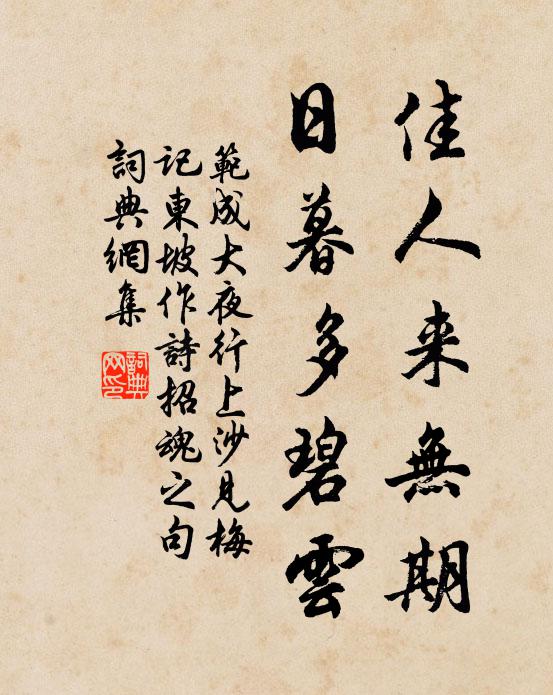 佳人来無期
日暮多碧雲
範成大夜行上沙見梅
記東坡作詩招魂之句
詞典網集
詞典网印